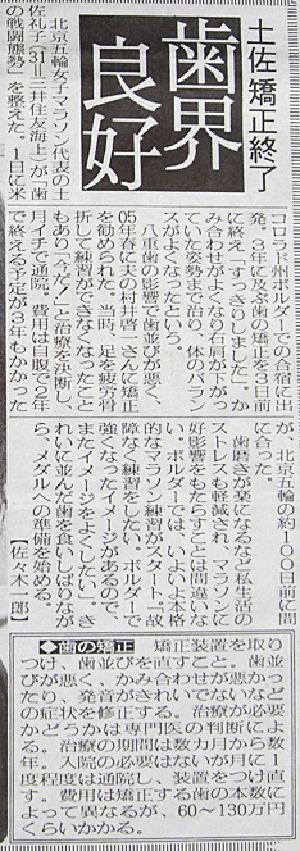 土佐 矯正終了
歯界
良好
北京五輪女子マラソン代表の土
佐礼子(31=三井住友海上)が「歯
の戦闘態勢」を整えた。1日に米
コロラド州ボルダーでの合宿に出
発。3年に及ぶ歯の矯正を3日前
に終え「すっきりしました」。か
み合わせがよくなり右肩が下がっ
ていた姿勢まで治り、体のバラン
スがよくなったという。
八重歯の影響で歯並びが悪く、
05年春に夫の村井啓一さんに矯正
を勧められた。当時、足を疲労骨
折して練習ができなくなったこと
もあり「今だ!」と治療を決断し、
月イチで通院。費用は自腹で2年
で終える予定が3年もかかった
が、北京五輪の約100日前に間
に合った。
歯磨きが楽になるなど私生活の
ストレスも軽減され、マラソンに
好影響をもたらすことは間違いな
い。ボルダーでは、いよいよ本格
的なマラソン練習がスタート。「故
障なく練習をしたい。ボルダーで
強くなったイメージがあるので、
またイメージをよくしたい」。き
れいに並んだ歯を食いしばりなが
ら、メダルへの準備を始める。
【佐々木一郎】
◆歯の矯正 矯正装置を取り
つけ、歯並びを直すこと。歯並
びが悪く、かみ合わせが悪かっ
たり、発音がきれいでないなど
の症状を修正する。治療が必要
かどうかは専門医の判断によ
る。治療の期間は数カ月から数
年。入院の必要はないが月に1
度程度は通院し、装置をつけ直
す。費用は矯正する歯の本数に
よって異なるが、60〜130万円
くらいかかる。